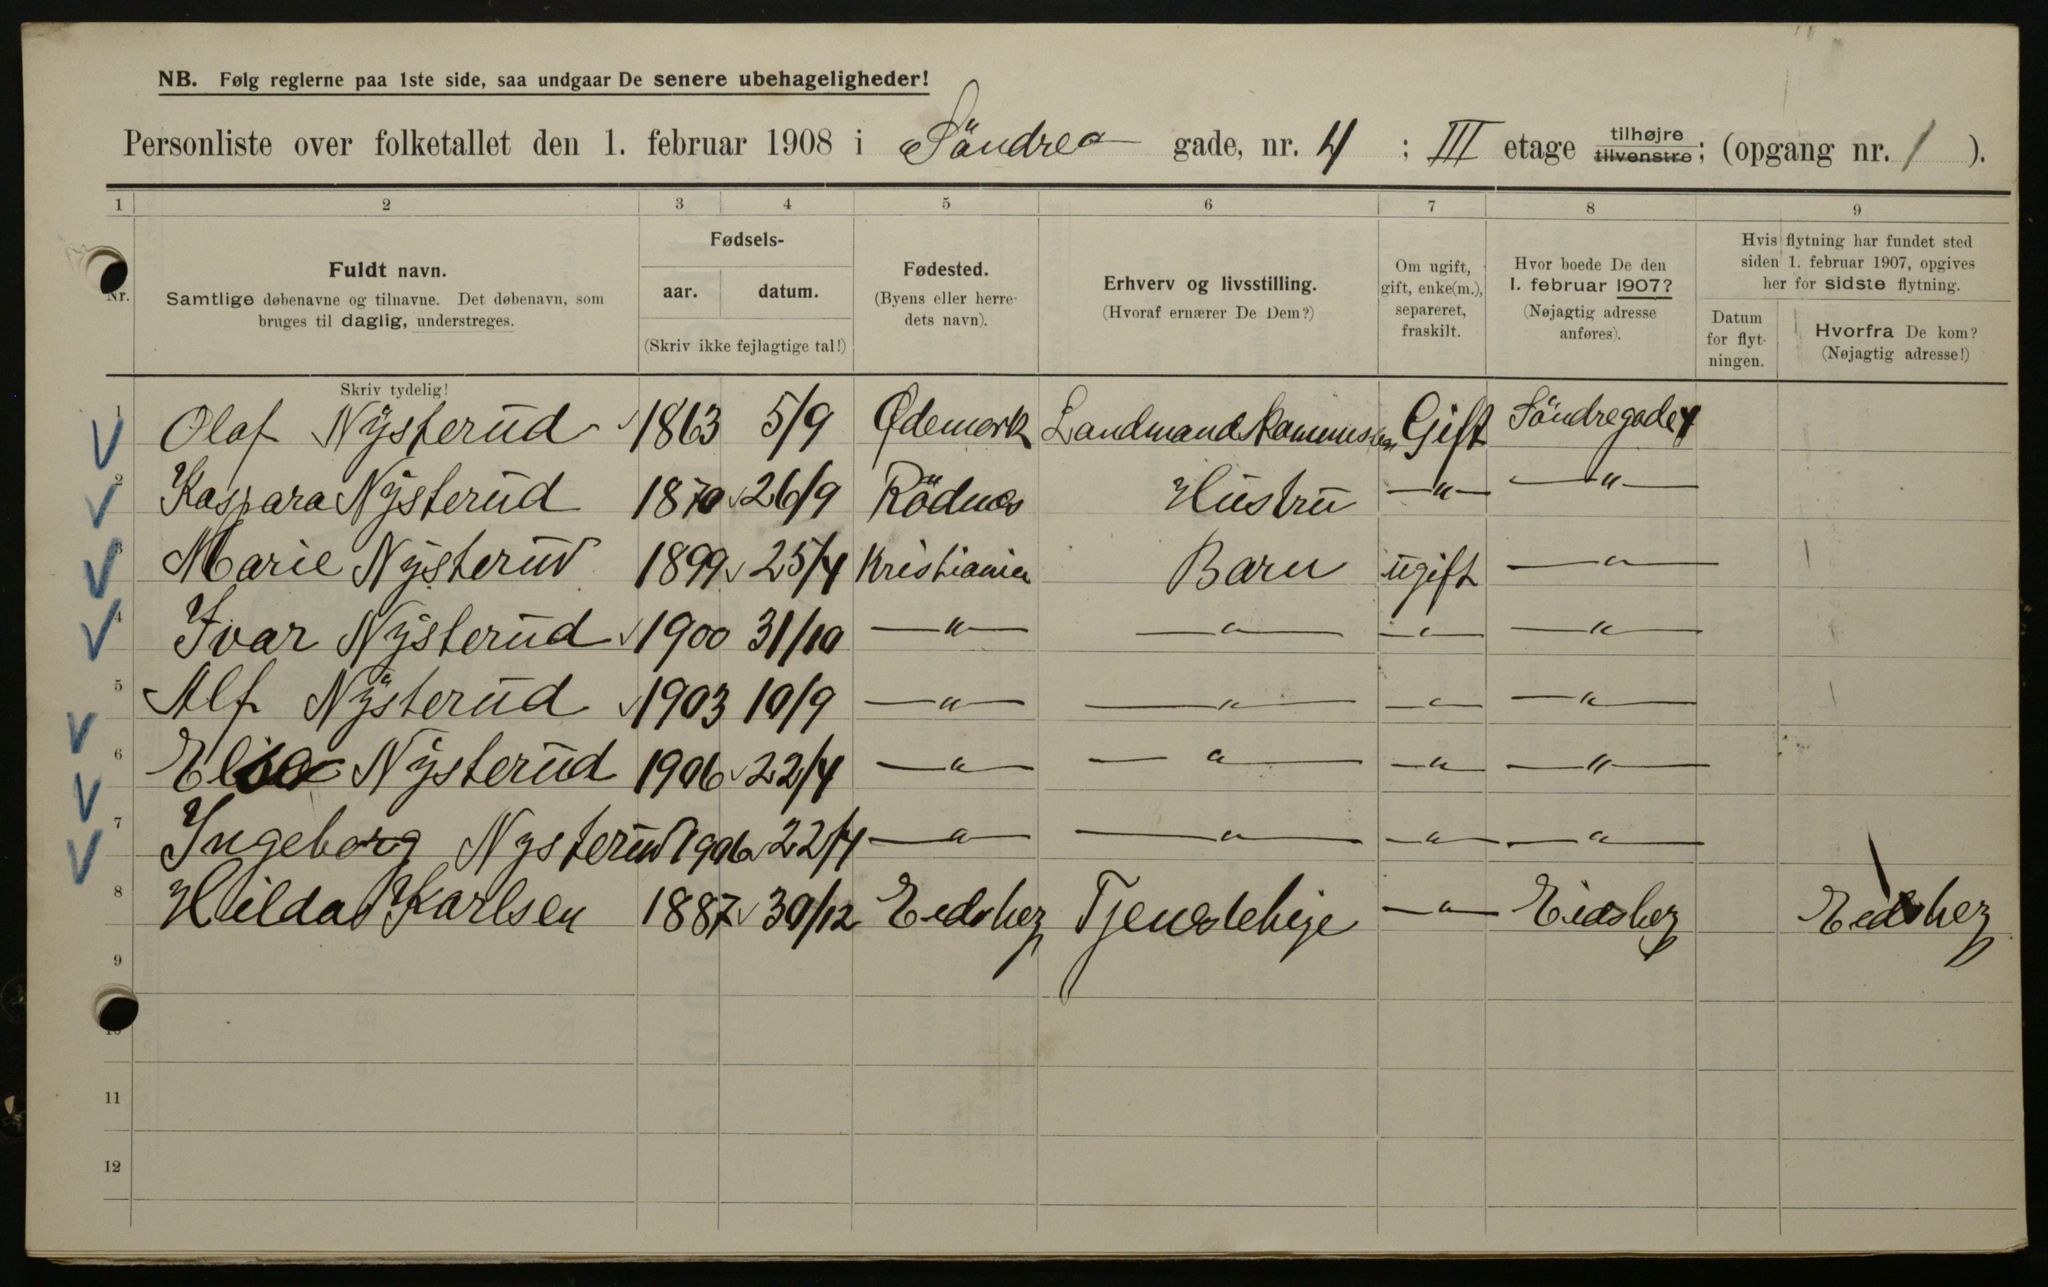 NB. Følg reglerne paa 1ste side, saa undgaar De senere ubehageligheder!
Personliste over folketallet den 1. februar 1908 i Söndre gade, nr. 4 ; III etage tilhøjre tilvenstre; (opgang nr. 1 ).
1 2 3 4 5 6 7 8 9
Nr. Fuldt navn. Samtlige døbenavne og tilnavne. Det døbenavn, som bruges til daglig, understreges.
Fødsels- aar. datum. (Skriv ikke fejlagtige tal!)
Fødested. (Byens eller herredets navn).
Erhverv og livsstilling. (Hvoraf ernærer De Dem?)
Om ugift, gift, enke(m.), separeret, fraskilt.
Hvor boede De den 1. februar 1907? (Nøjagtig adresse anføres).
Hvis flytning har fundet sted siden 1. februar 1907, opgives her for sidste flytning.
Datum for flytningen. Hvorfra De kom? (Nøjagtig adresse!)
Skriv tydelig!
1 Olaf Nysterud 1863 5/9 Ødemork Landmandskommission Gift Söndregade 4
2 Kaspara Nysterud 1870 26/9 Rödnes Hustru —"— —"—
3 Marie Nysterud 1899 25/4 Kristiania Barn ugift —"—
4 Ivar Nysterud 1900 31/10 —"— —"— —"— —"—
5 Alf Nysterud 1903 10/9 —"— —"— —"— —"—
6 Elsa Nysterud 1906 22/4 —"— —"— —"— —"—
7 Ingeborg Nysterud 1906 22/4 —"— —"— —"— —"—
8 Hilda Karlsen 1887 30/12 Eidsberg Tjenestepige —"— Eidsberg Eidsberg
9
10
11
12